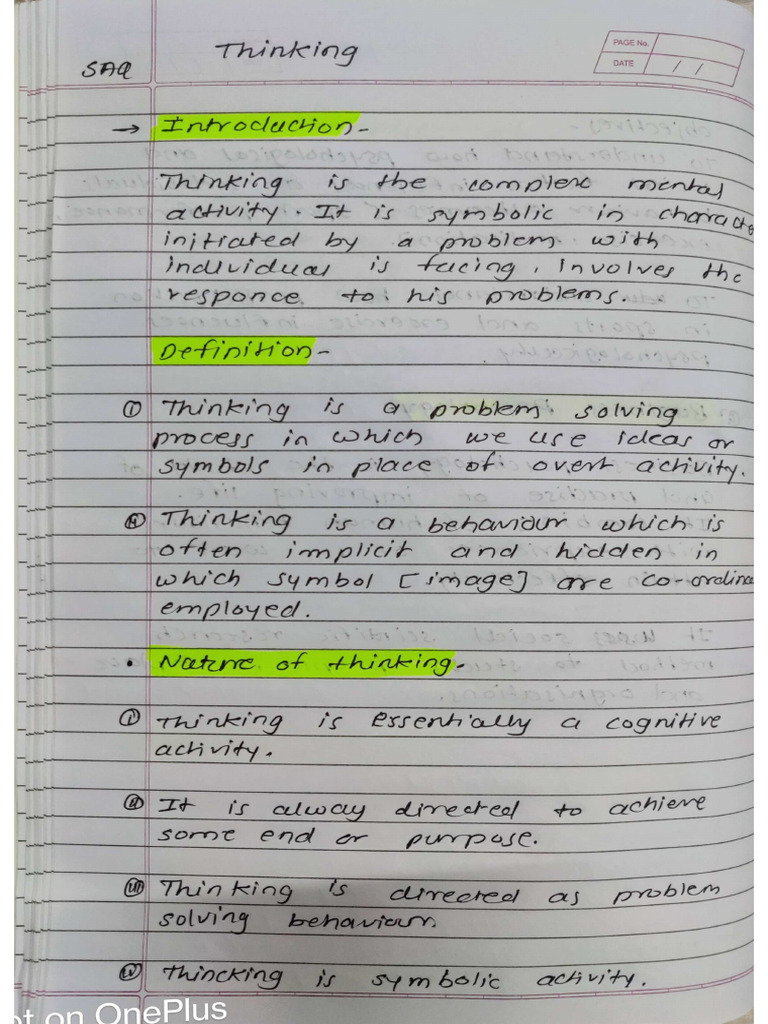 Thinking
PAGE No.
SAQ
DATE / /
→ Introduction -
Thinking is the complex mental
activity. It is symbolic in characte
initiated by a problem with
individual is facing, involves the
responce to his problems.
Definition -
(i) Thinking is a problem solving
process in which we use ideas or
symbols in place of overt activity.
(ii) Thinking is a behaviour which is
often implicit and hidden in
which symbol [image] are co-ordina
employed.
• Nature of thinking -
(i) Thinking is essentially a cognitive
activity.
(ii) It is alway directed to achieve
some end or purpose.
(iii) Thinking is directed as problem
solving behaviour.
(iv) Thincking is symbolic activity.
ot on OnePlus